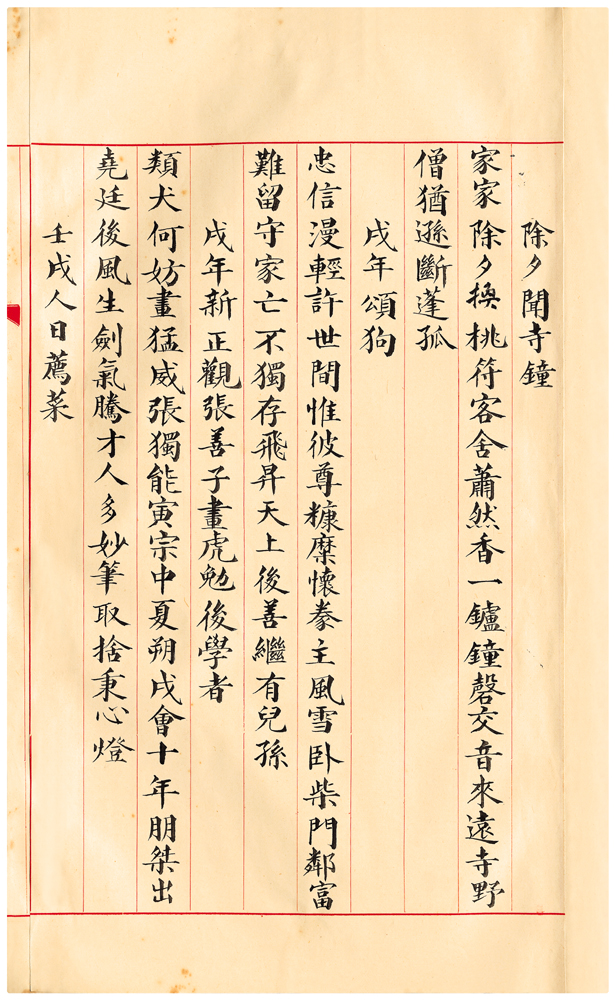 除夕聞寺鐘
家家除夕換桃符客舍蕭然香一鑪鐘磬交音來遠寺野
僧猶遜斷蓬孤
戌年頌狗
忠信漫輕許世間惟彼尊糠糜懷豢主風雪卧柴門鄰富
難留守家亡不獨存飛昇天上後善繼有兒孫
戌年新正觀張善子畫虎勉後學者
類犬何妨畫猛威張獨能寅宗中夏朔戌會十年朋桀出
堯廷後風生劍氣騰才人多妙筆取捨秉心燈
壬戌人日薦菜